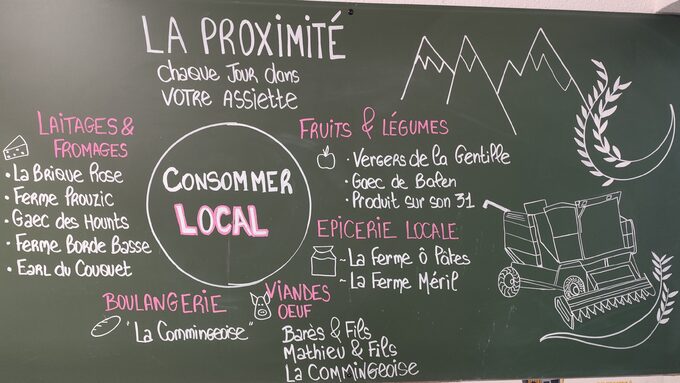 LA PROXIMITÉ
Chaque Jour dans
VOTRE ASSIETTE
LAITAGES &
FROMAGES
• La Brique Rose
• Ferme Prouzic
• Gaec des Hounts
• Ferme Borde Basse
• Earl du Couquet
CONSOMMER
LOCAL
FRUITS & LÉGUMES
• Vergers de la Gentille
• Gaec de Balen
• Produit sur son 31
EPICERIE LOCALE
~ La Ferme ô Pâtes
~ La Ferme Méril
BOULANGERIE
"La Commingeoise"
VIANDES
OEUF
Barès & Fils
Mathieu & Fils
La COMMINGEOISE